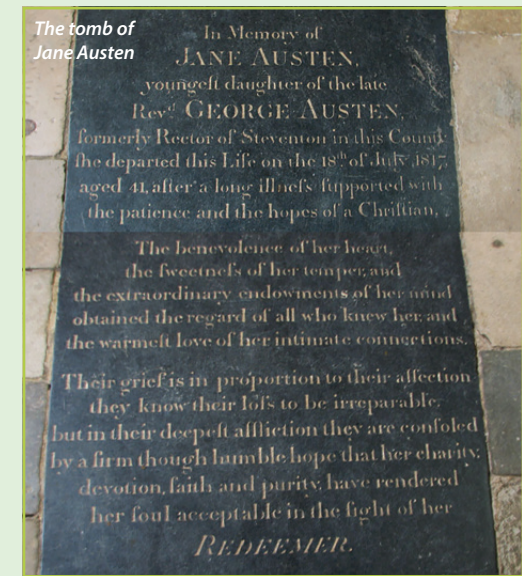 The tomb of
Jane Austen
In Memory of
JANE AUSTEN,
youngeſt daughter of the late
Revᵈ GEORGE AUSTEN,
formerly Rector of Steventon in this County
ſhe departed this Life on the 18ᵗʰ of July 1817,
aged 41, after a long illneſs ſupported with
the patience and the hopes of a Chriſtian.
The benevolence of her heart,
the ſweetneſs of her temper, and
the extraordinary endowments of her mind
obtained the regard of all who knew her, and
the warmeſt love of her intimate connections.
Their grief is in proportion to their affection
they know their loſs to be irreparable,
but in their deepeſt affliction they are conſoled
by a firm though humble hope that her charity,
devotion, faith and purity, have rendered
her ſoul acceptable in the ſight of her
REDEEMER.